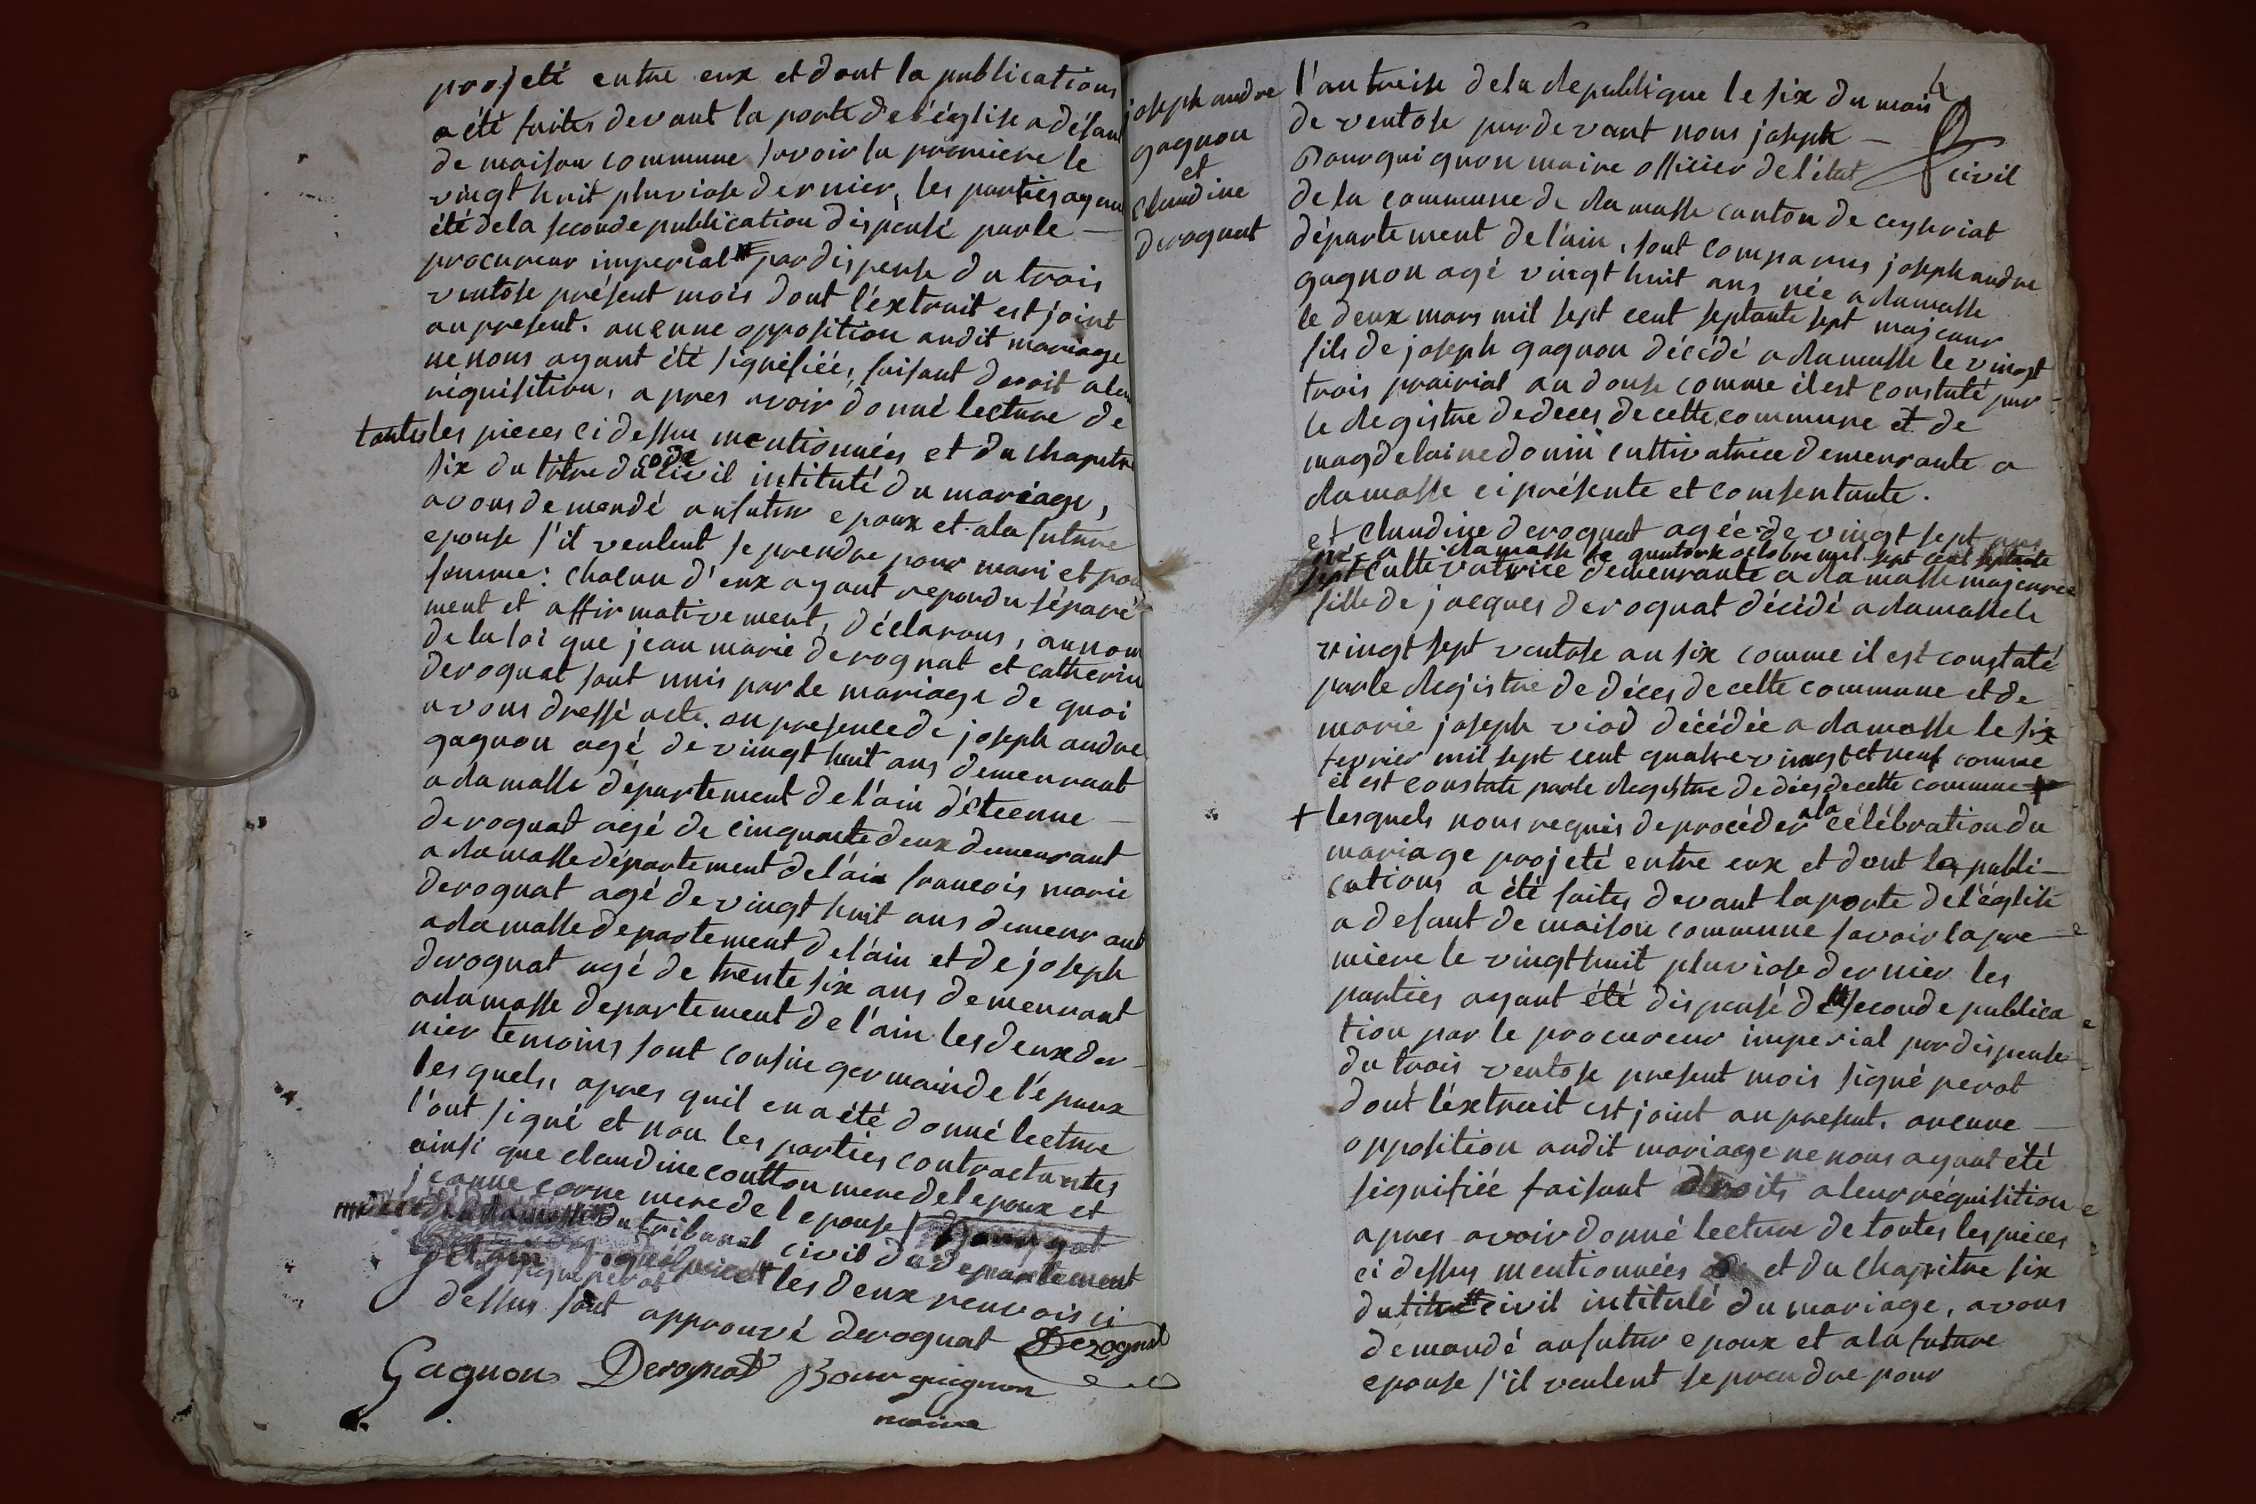 projeté entre eux et dont la publications
a été faites devant la porte de l'église a défaut
de maison commune savoir la premiere le
vingt huit pluviose dernier, les parties ayant
été dela seconde publication dispensé par le
procureur imperial # par dispense du trois
ventose présent mois dont l'éxtrait est joint
au present. aucune opposition audit mariage
ne nous ayant été signifiéé, faisant droit a leur
réquisition, apres avoir donné lecture de
toutes les pieces ci dessus mentionnées et du chapitre
six du titre du code civil intitulé du mariage,
avons demandé au futur epoux et a la future
epouse s'il veulent se prendre pour mari et pour
femme: chacun d'eux ayant repondu séparé
ment et affirmativement, déclarons, au nom
de la loi que jean marie derognat et catherine
derognat sont unis par le mariage de quoi
avons dressé acte. en presence de joseph andré
gagnon agé de vingt huit ans demeurant
a ramasse departement de l'ain d'étienne
derognat agé de cinquante deux demeurant
a ramasse département de l'ain francois marie
derognat agé de vingt huit ans demeurant
a ramasse departement de l'ain et de joseph
derognat agé de trente six ans demeurant
a ramasse departement de l'ain les deux der
nier temoins sont cousin germain de l'époux
lesquels, apres quil en a été donné lecture
l'ont signé et non les parties contractantes
ainsi que claudine coutton mere de lepoux et
jeanne corne mere de lepouse
du tribunal civil du departement
de l'ain signé perot les deux renvois ci
dessus sont approuvé derognat Derognat
Gagnon Derognat Bourguignon
maire
joseph andre
gagnon
et
claudine
derognat
4
l'an treize de la Republique le six du mois
de ventose par devant nous joseph
Bourguignon maire officier de l'état civil
de la commune de Ramasse canton de ceyseriat
département de l'ain, sont comparus joseph andré
gagnon agé vingt huit ans née a Ramasse
le deux mars mil sept cent septante sept majeur
fils de joseph gagnon décédé a Ramasse le vingt
trois prairial an douse comme il est constaté par
le Registre de deces de cette commune et de
magdelaine donin cultivatrice demeurante a
Ramasse ci présente et consentante.
et claudine derognat agéé de vingt sept ans
née a Ramasse le quatorze octobre mil sept cent septante
sept cultivatrice demeurante a Ramasse majeure
fille de jacques derognat décédé a Ramasse le
vingt sept ventose an six comme il est constaté
par le Registre de déces de cette commune et de
marie joseph viod décédée a Ramasse le six
fevrier mil sept cent quatre vingt et neuf comme
il est constate par le Registre de déces de cette commune +
+ lesquels nous requis de procéder a la célébration du
mariage projeté entre eux et dont les publi
cations a été faites devant la porte de l'église
a defaut de maison commune savoir la pre
miere le vingt huit pluviose dernier les
parties ayant été dispensé de la seconde publica
tion par le procureur imperial par dispense
du trois ventose present mois signé perot
dont l'éxtrait est joint au present. aucune
opposition audit mariage ne nous ayant été
signifiée faisant droits a leur réquisition
apres avoir donné lecture de toutes les pieces
ci dessus mentionnées et du chapitre six
du titre # civil intitulé du mariage, avons
demandé au futur epoux et a la future
epouse s'il veulent se prendre pour